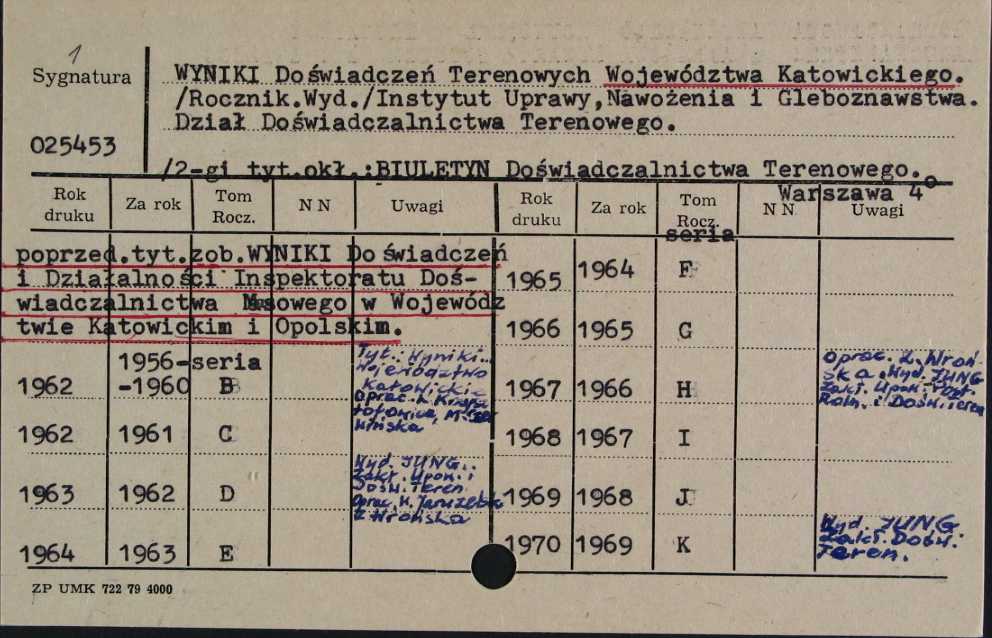 1
Sygnatura
WYNIKI Doświadczeń Terenowych Województwa Katowickiego.
/Rocznik.Wyd./Instytut Uprawy,Nawożenia i Gleboznawstwa.
Dział Doświadczalnictwa Terenowego.
025453
/2-gi tyt.okł.:BIULETYN Doświadczalnictwa Terenowego.
Warszawa 4°
Rok druku Za rok Tom Rocz. N N Uwagi Rok druku Za rok Tom Rocz. N N Uwagi
seria
poprzed.tyt.zob.WYNIKI Doświadczeń
i Działalności Inspektoratu Doś-
wiadczalnictwa Masowego w Wojewódz
twie Katowickim i Opolskim.
1962 1956-1960 seria B Tyt.: Wyniki..
Województwo
Katowickie
Oprac.
1962 1961 C
1963 1962 D Wyd. JUNG..
Zakł. Upow. i
Dośw. Teren.
Oprac. H.
Z Wrońska
1964 1963 E
1965 1964 F
1966 1965 G
1967 1966 H Oprac. Z. Wroń-
ska. Wyd. JUNG
Zakł. Upow. Post.
Roln. i Dośw. Teren
1968 1967 I
1969 1968 J
1970 1969 K Wyd. JUNG
Zakł. Dośw.
Teren.
ZP UMK 722 79 4000